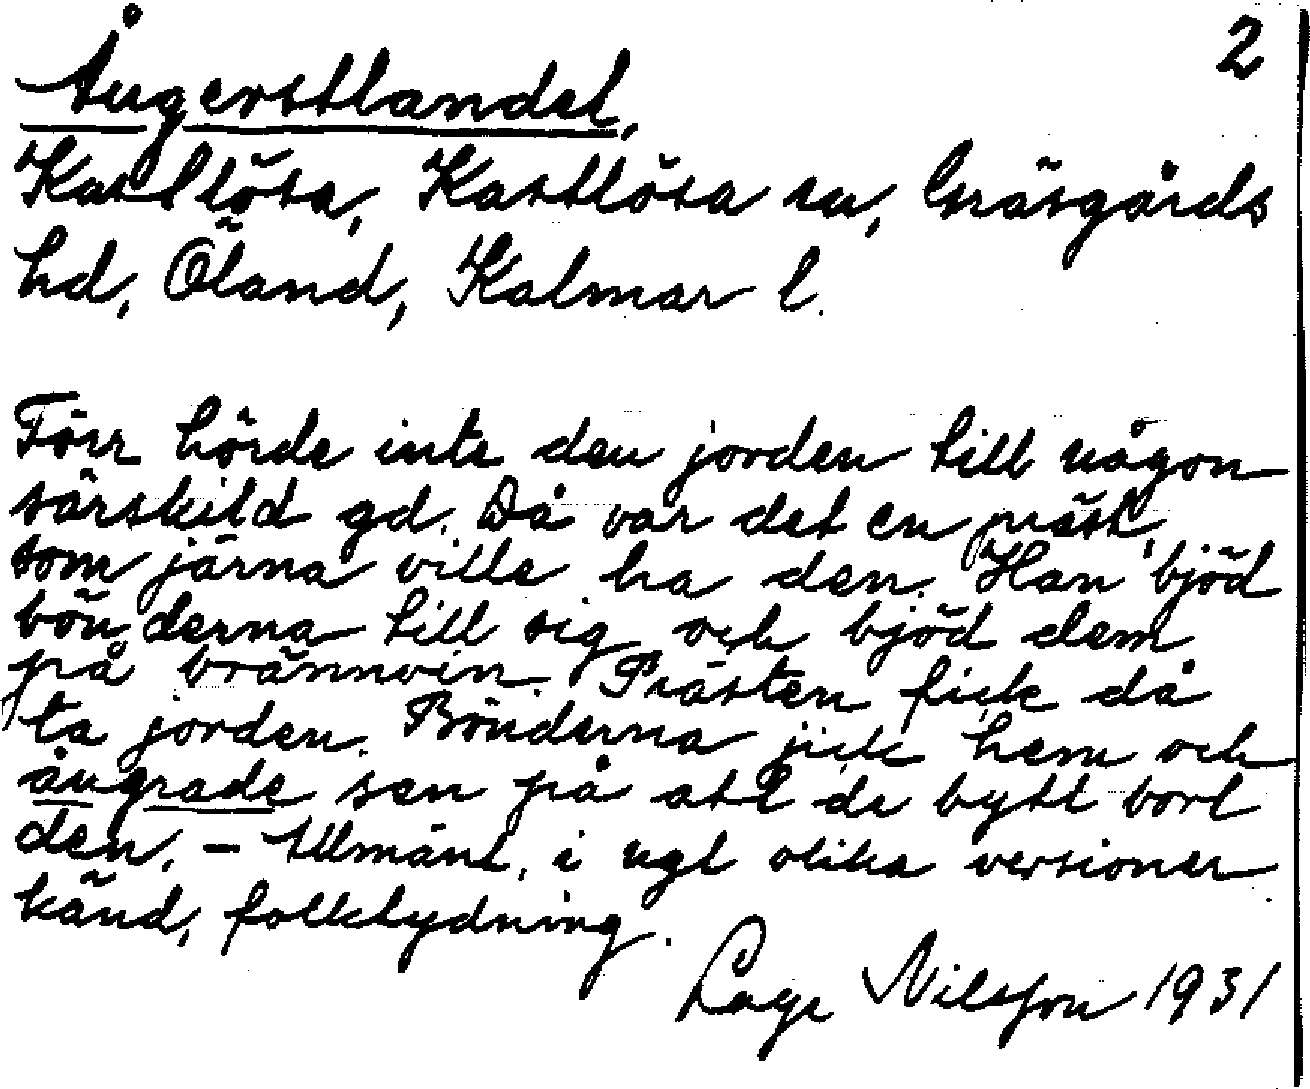 2
Ångerstlandet,
Kastlösa, Kastlösa sn, Gräsgårds
hd, Öland, Kalmar l.
Förr hörde inte den jorden till någon
särskild gd. Då var det en präst,
som järna ville ha den. Han bjöd
bönderna till sig och bjöd dem
på brännvin. Prästen fick då
ta jorden. Bönderna jick hem och
ångrade sen på att de bytt bort
den. – Allmänt, i ngt olika versioner
känd, folktydning.
Lage Nilsson 1931